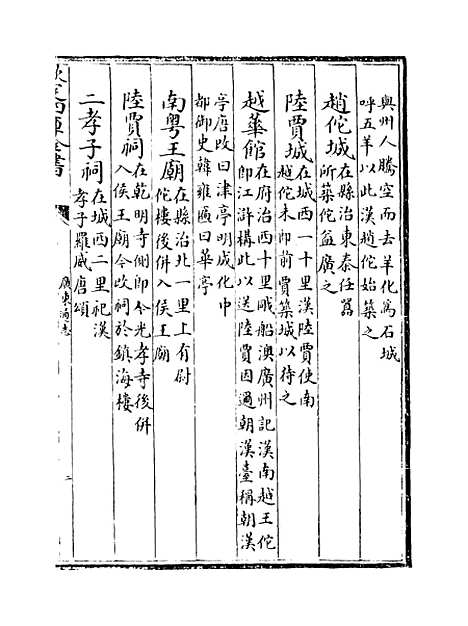 與州人騰空而去羊化為石城
呼五羊以此漢趙佗始築之
趙佗城在縣治東秦任囂
所築佗益廣之
陸賈城在城西一十里漢陸賈使南
越佗未即前賈築城以待之
越華館在府治西十里戙船澳廣州記漢南越王佗
即江滸構此以送陸賈因過朝漢臺稱朝漢
亭唐改曰津亭明成化中
都御史韓雍匾曰華亭
南粵王廟在縣治北一里上有尉
佗樓後併入侯王廟
陸賈祠在乾明寺側即今光孝寺後併
入侯王廟今改祠於鎮海樓
二孝子祠在城西二里祀漢
孝子羅威唐頌
欽定四庫全書
廣東通志
二